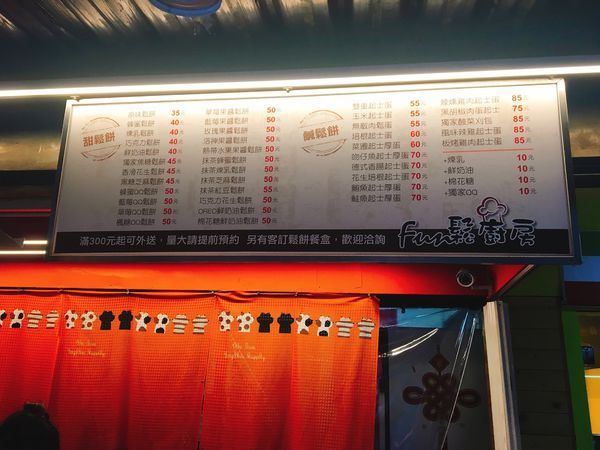 甜鬆餅
原味鬆餅 35元
蜂蜜鬆餅 40元
煉乳鬆餅 40元
巧克力鬆餅 40元
鮮奶油鬆餅 40元
獨家焦糖鬆餅 45元
香滑花生鬆餅 45元
黑糖芝麻鬆餅 45元
蜂蜜QQ鬆餅 50元
藍莓QQ鬆餅 50元
草莓QQ鬆餅 50元
楓糖QQ鬆餅 50元
草莓果醬鬆餅 50元
藍莓果醬鬆餅 50元
玫瑰果醬鬆餅 50元
洛神果醬鬆餅 50元
熱帶水果果醬鬆餅 50元
抹茶蜂蜜鬆餅 50元
抹茶煉乳鬆餅 50元
抹茶芝麻鬆餅 50元
抹茶紅豆鬆餅 55元
巧克力花生鬆餅 50元
OREO鮮奶油鬆餅 50元
棉花糖鮮奶油鬆餅 50元
鹹鬆餅
雙重起士蛋 55元
玉米起士蛋 55元
燕肌肉起士蛋 55元
培根起士蛋 60元
菜脯起士厚蛋 60元
吻仔魚起士厚蛋 70元
德式香腸起士蛋 70元
花生培根起士蛋 70元
鮪魚起士厚蛋 70元
鮭魚起士厚蛋 70元
辣燻雞肉起士蛋 85元
黑胡椒肉蛋起士 75元
獨家酸菜刈包 85元
風味辣雞起士蛋 85元
板烤雞肉起士蛋 85元
+煉乳 10元
+鮮奶油 10元
+棉花糖 10元
+獨家QQ 10元
滿300元起可外送，量大請提前預約 另有客訂鬆餅餐盒，歡迎洽詢
fun鬆廚房